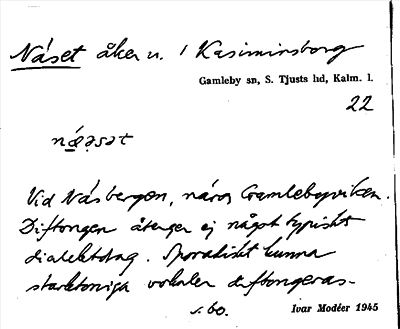 Näset åker u. / Kasimirsborg
Gamleby sn, S. Tjusts hd, Kalm. l.
22
næ̀ə̣sət
Vid Näsbergen, näros Gamlebyviken.
Diftongen återger ej något typiskt
dialektdrag. Sporadiskt kunna
starktoniga vokaler diftongeras.
s. bo.
Ivar Modéer 1945